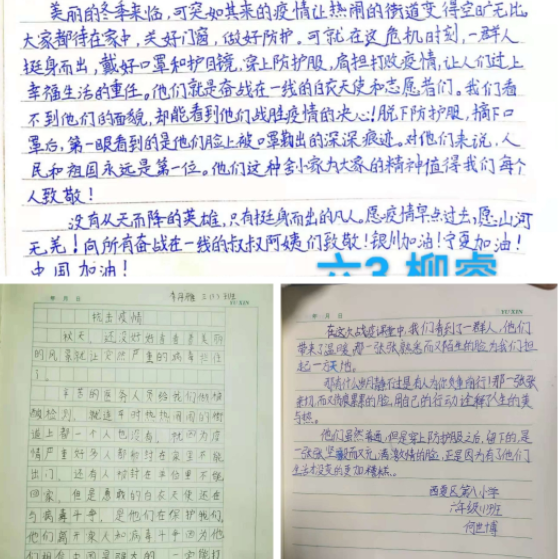 美丽的冬季来临,可突如其来的疫情让热闹的街道变得空旷无比。
大家都待在家中,关好门窗,做好防护。可就在这危机时刻,一群人
挺身而出,戴好口罩和护目镜,穿上防护服,肩担打败疫情,让人们过上
幸福生活的重任。他们就是奋战在一线的白衣天使和志愿者们。我们看
不到他们的面貌,却能看到他们战胜疫情的决心!脱下防护服,摘下口
罩后,第一眼看到的是他们脸上被口罩勒出的深深痕迹。对他们来说,人
民和祖国永远是第一位。他们这种舍小家为大家的精神值得我们每个
人致敬!
没有从天而降的英雄,只有挺身而出的凡人。愿疫情早点过去,愿山河
无恙!向所有奋战在一线的叔叔阿姨们致敬!银川加油!宁夏加油!
中国加油!
六3 柳睿
年 月 日
YU XIN
抗击疫情
秋天,还没好好看看美丽
的风景就让突然严重的病毒
了。
辛苦的医务人员给我们做核
酸检测,就连平时热热闹闹的街
道上都一个人也没有,就因为疫
情严重好多人都被封在家里不能
出门。还有人被封在单位里不能
回家。但是勇敢的白衣天使还在
与病毒斗争,是他们在保护我们。
他们离开家人和病毒斗争因为他
年 月 日
YU XIN
在这次战疫课堂中,我们看到了一群人,他们
带来了温暖,那一张张熟悉而又陌生的脸为我们担
起一方天地。
那有什么岁月静好,只是有人为你负重前行!那一张张
亲切,而又伤痕累累的脸,用自己的行动诠释了人生的美
与
他们虽然普通,但是穿上防护服之后,留下的,是
一张张坚毅而又充满激情的脸,正是因为有了他们
生活才改变的更加精彩。
西夏区第八小学
六年级
何世博